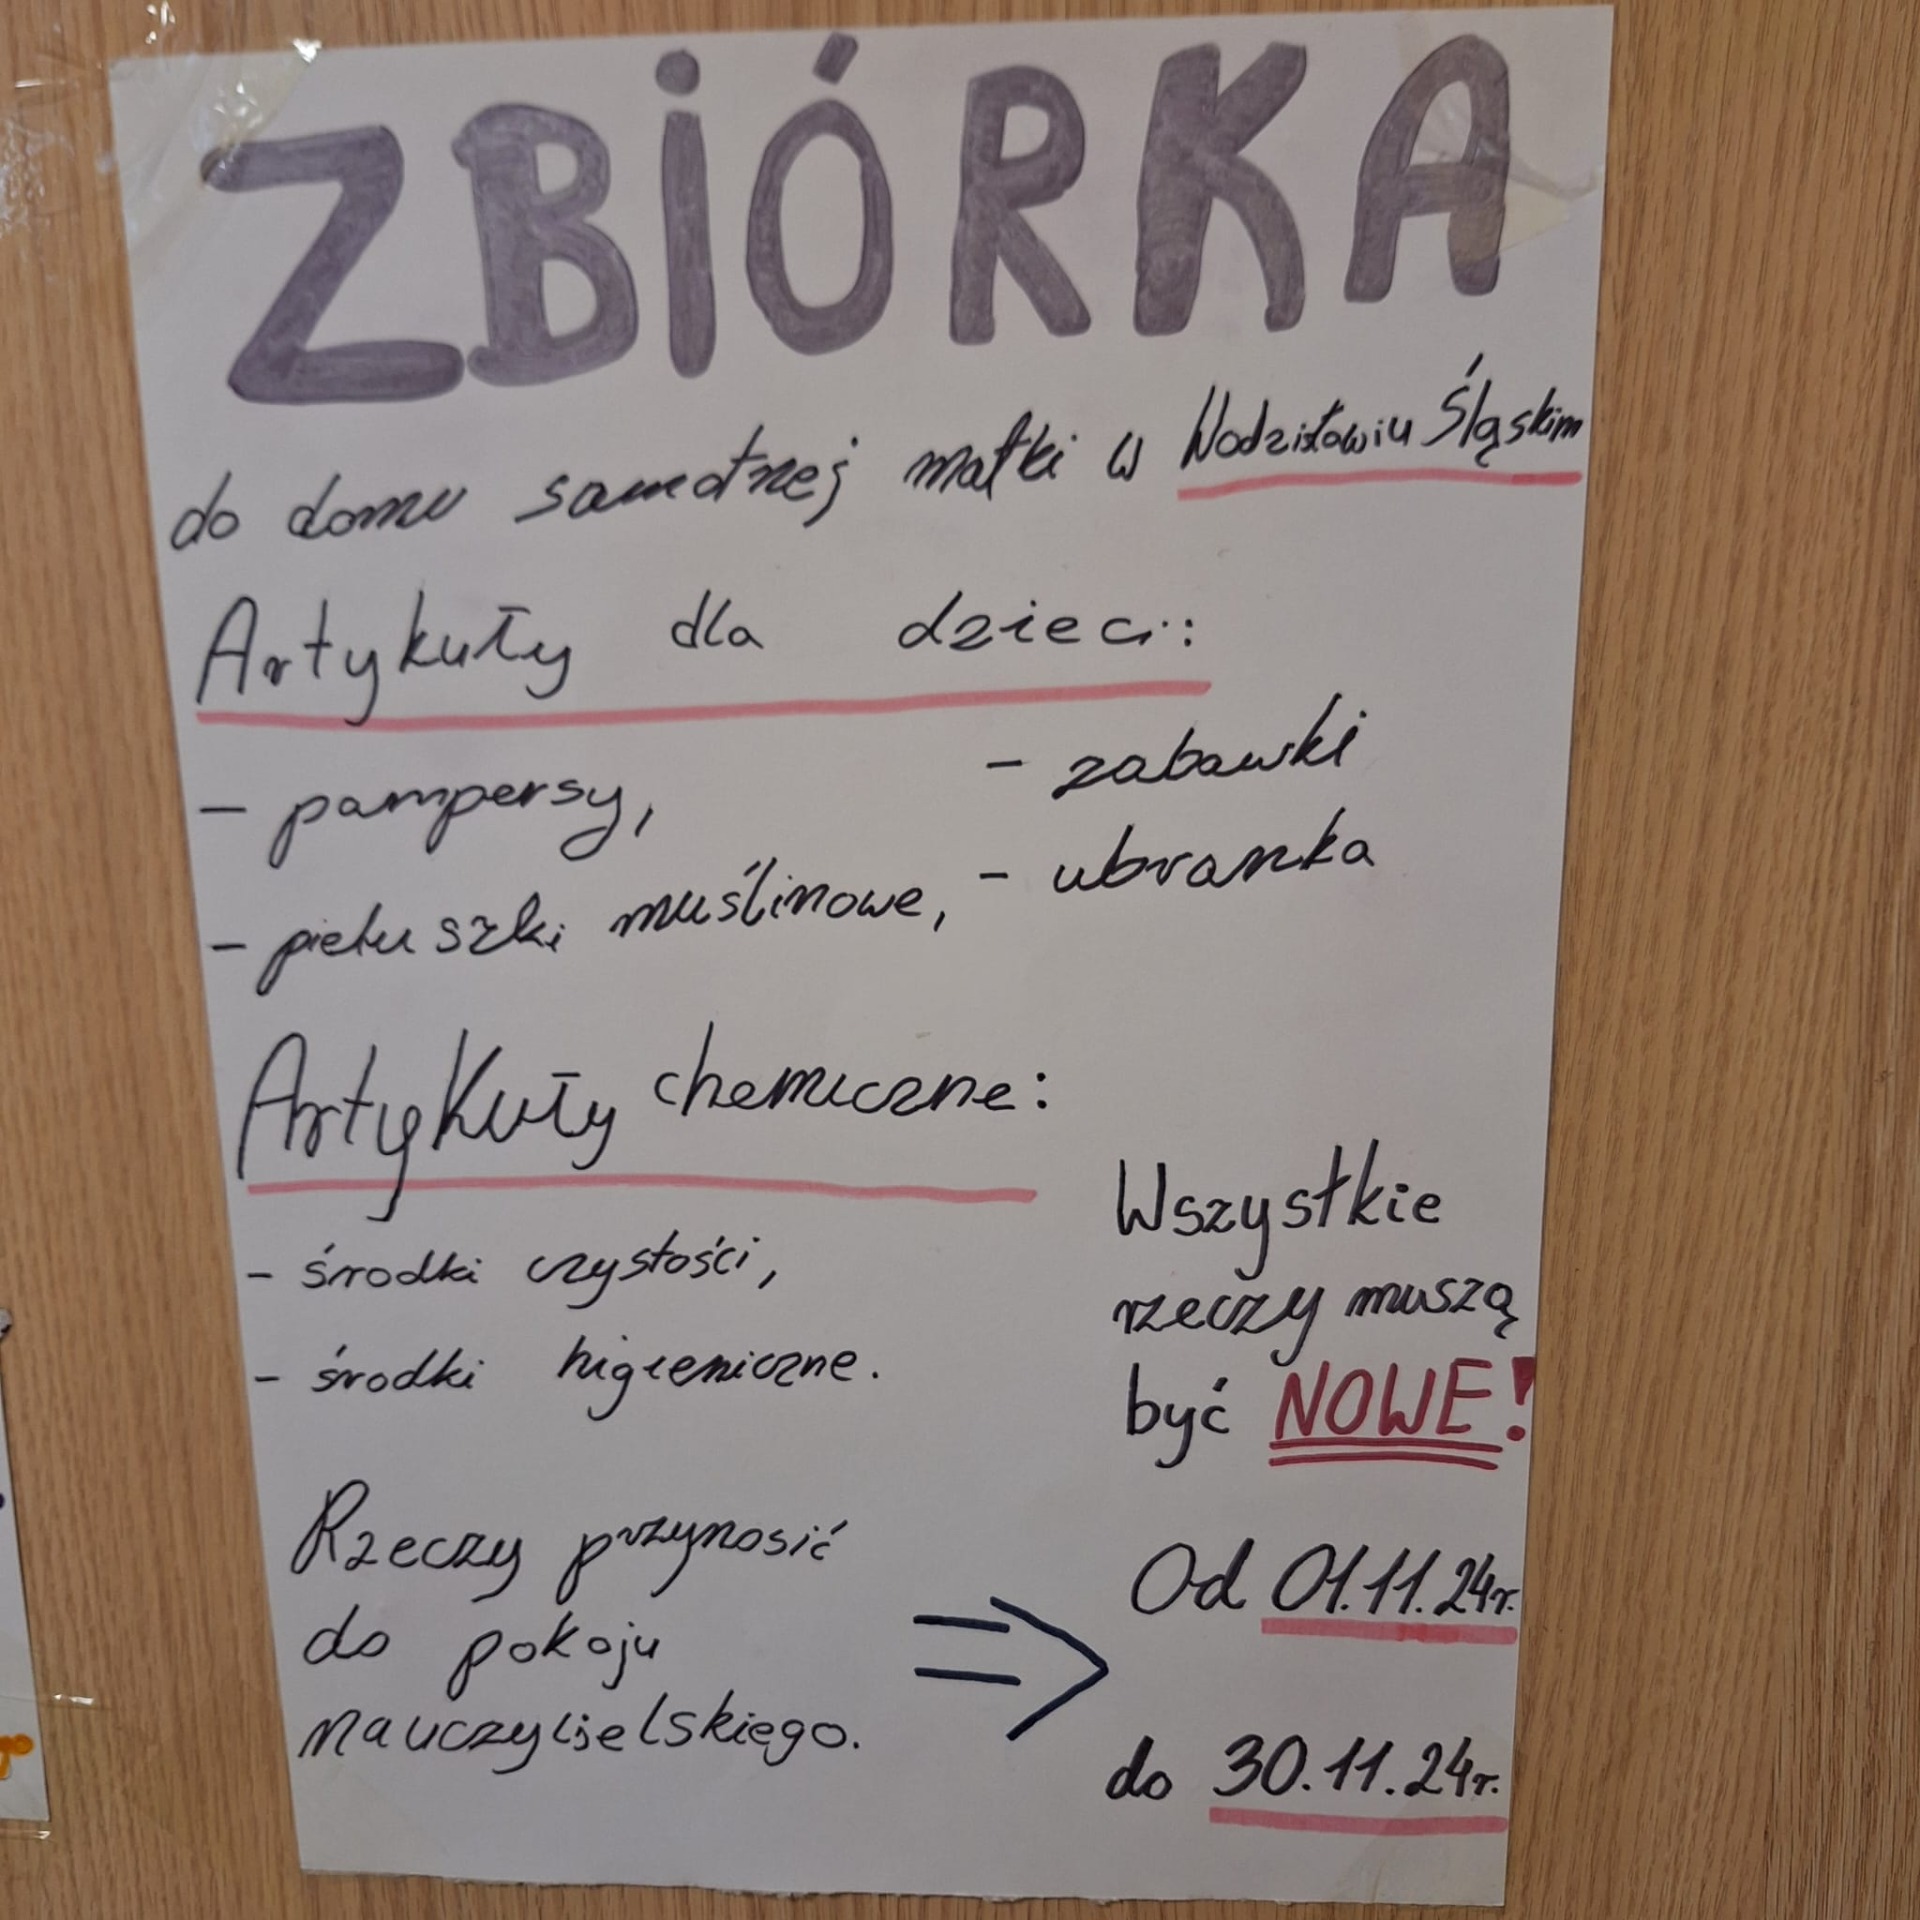 ZBiÓRKA
do domu samotnej matki w Wodzisławiu Śląskim
Artykuły dla dzieci:
- pampersy,
- pieluszki muślinowe,
- zabawki
- ubranka
Artykuły chemiczne:
- środki czystości,
- środki higieniczne.
Wszystkie
rzeczy muszą
być NOWE!
Rzeczy przynosić
do pokoju
nauczycielskiego.
=>
Od 01.11.24r.
do 30.11.24r.